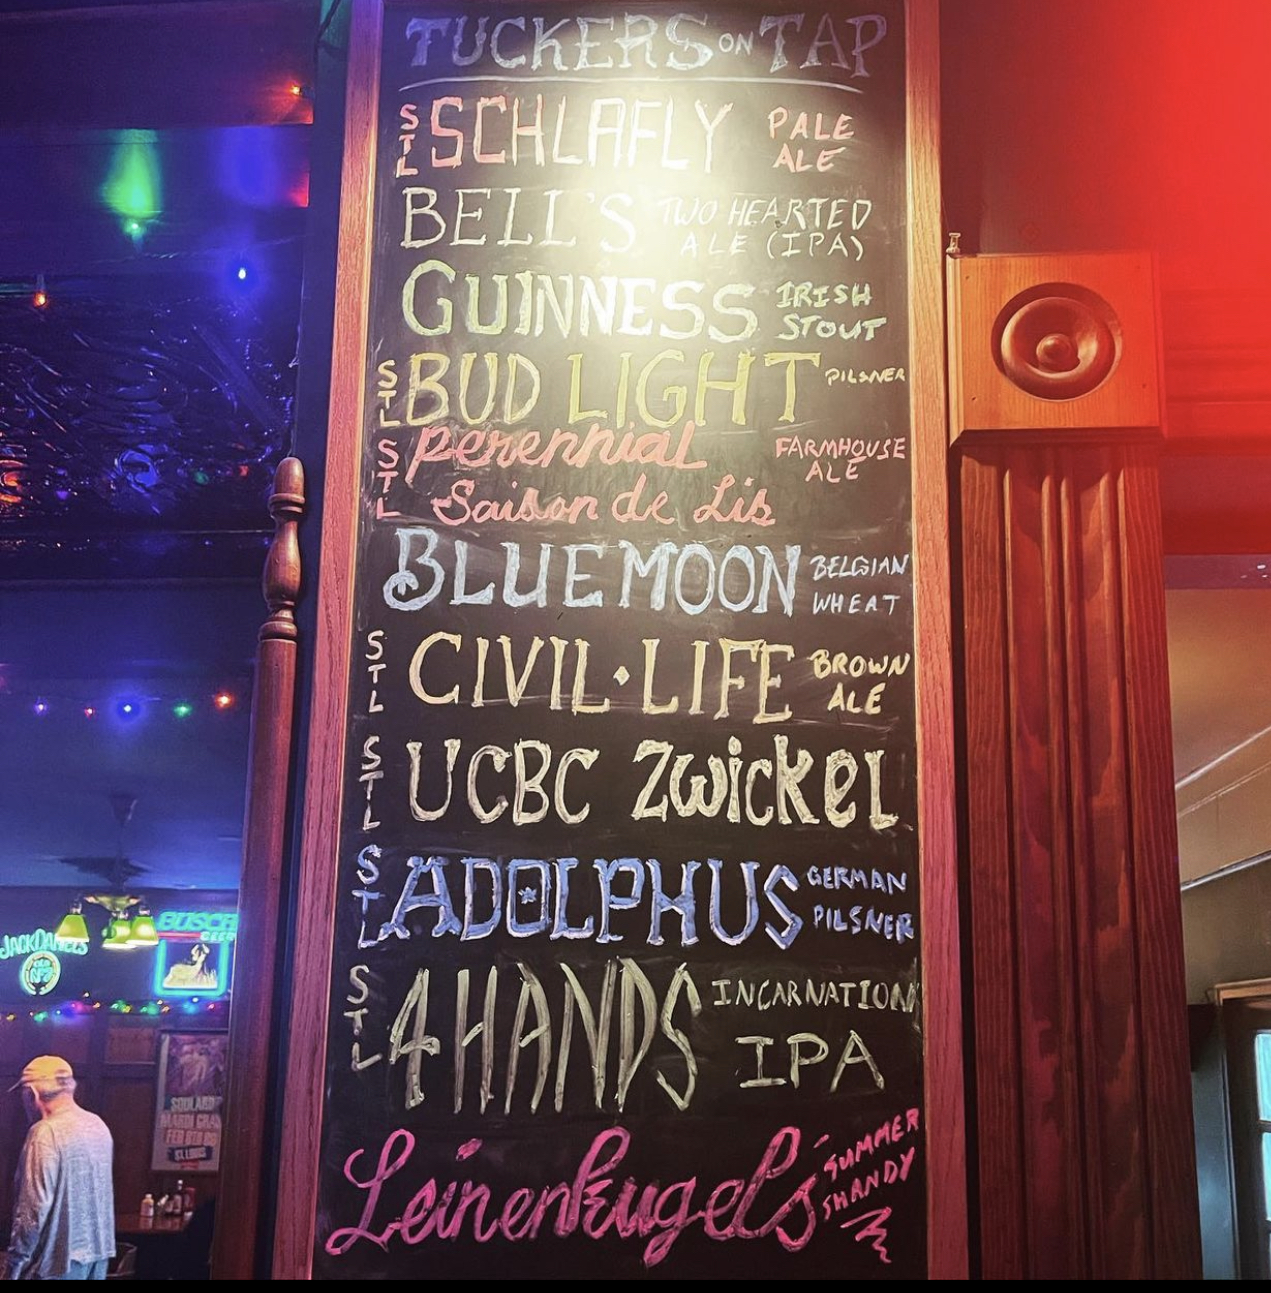 TUCKERS ON TAP
STL SCHLAFLY PALE ALE
BELL'S TWO HEARTED ALE (IPA)
GUINNESS IRISH STOUT
STL BUD LIGHT PILSNER
STL Perennial FARMHOUSE ALE
Saison de Lis
BLUE MOON BELGIAN WHEAT
STL CIVIL·LIFE BROWN ALE
STL UCBC Zwickel
STL ADOLPHUS GERMAN PILSNER
STL 4HANDS INCARNATION IPA
Leinenkugel's SUMMER SHANDY
JACK DANIEL'S
OLD
Nº7
BUSCH
BEER
SOULARD
MARDI GRAS
FEB
ST. LOUIS